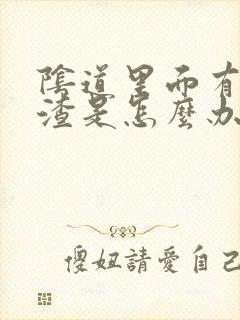 陰道里而有
渣是怎麼办
傻妞請愛自己